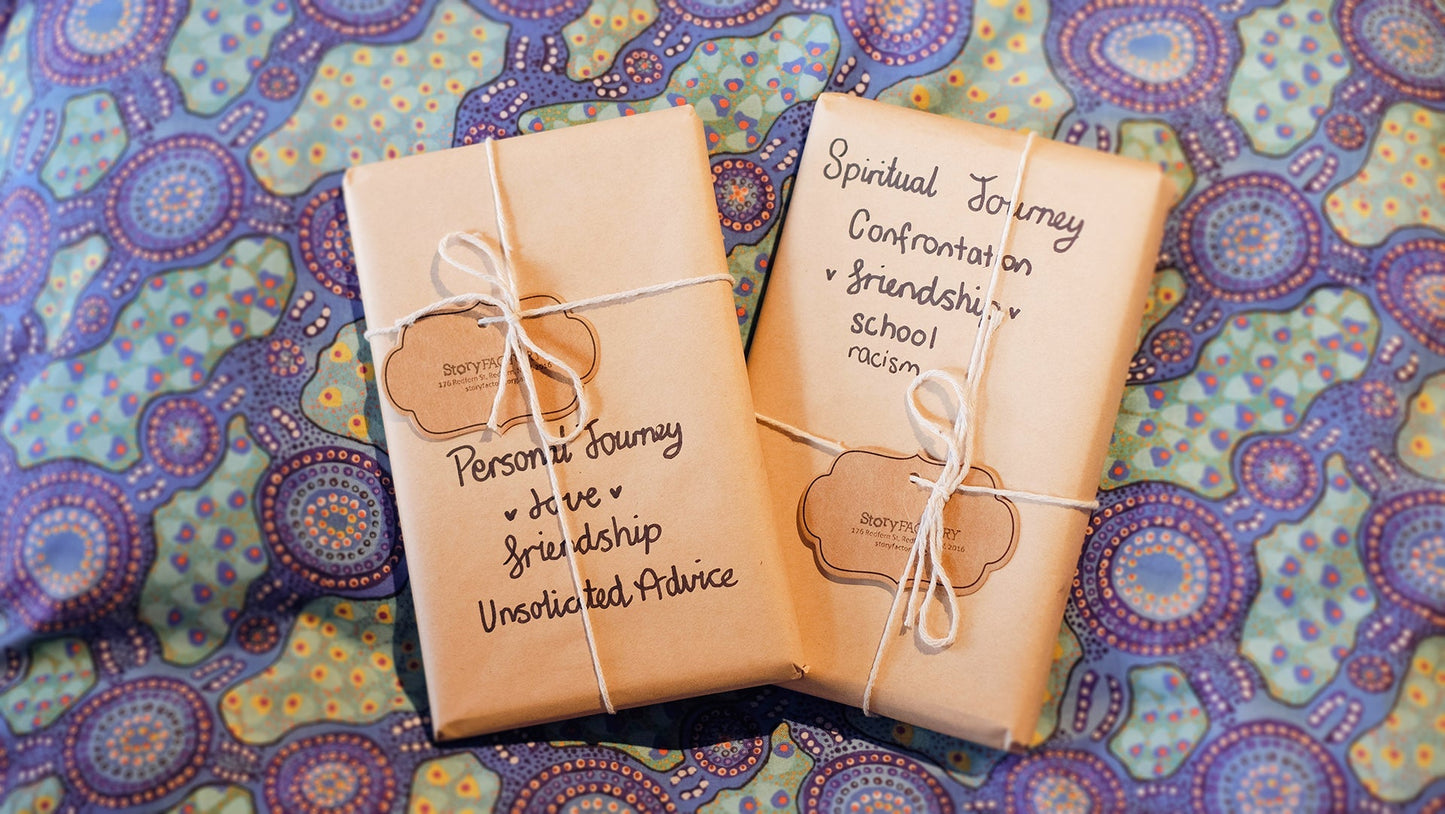 StoryFACTORY
176 Redfern St, Redfern 2016
storyfactory.org
Personal Journey
Love
friendship
Unsolicated Advice
Spiritual Journey
Confrontation
friendship
school
racism
StoryFACTORY
176 Redfern St, Redfern 2016
storyfactory.org